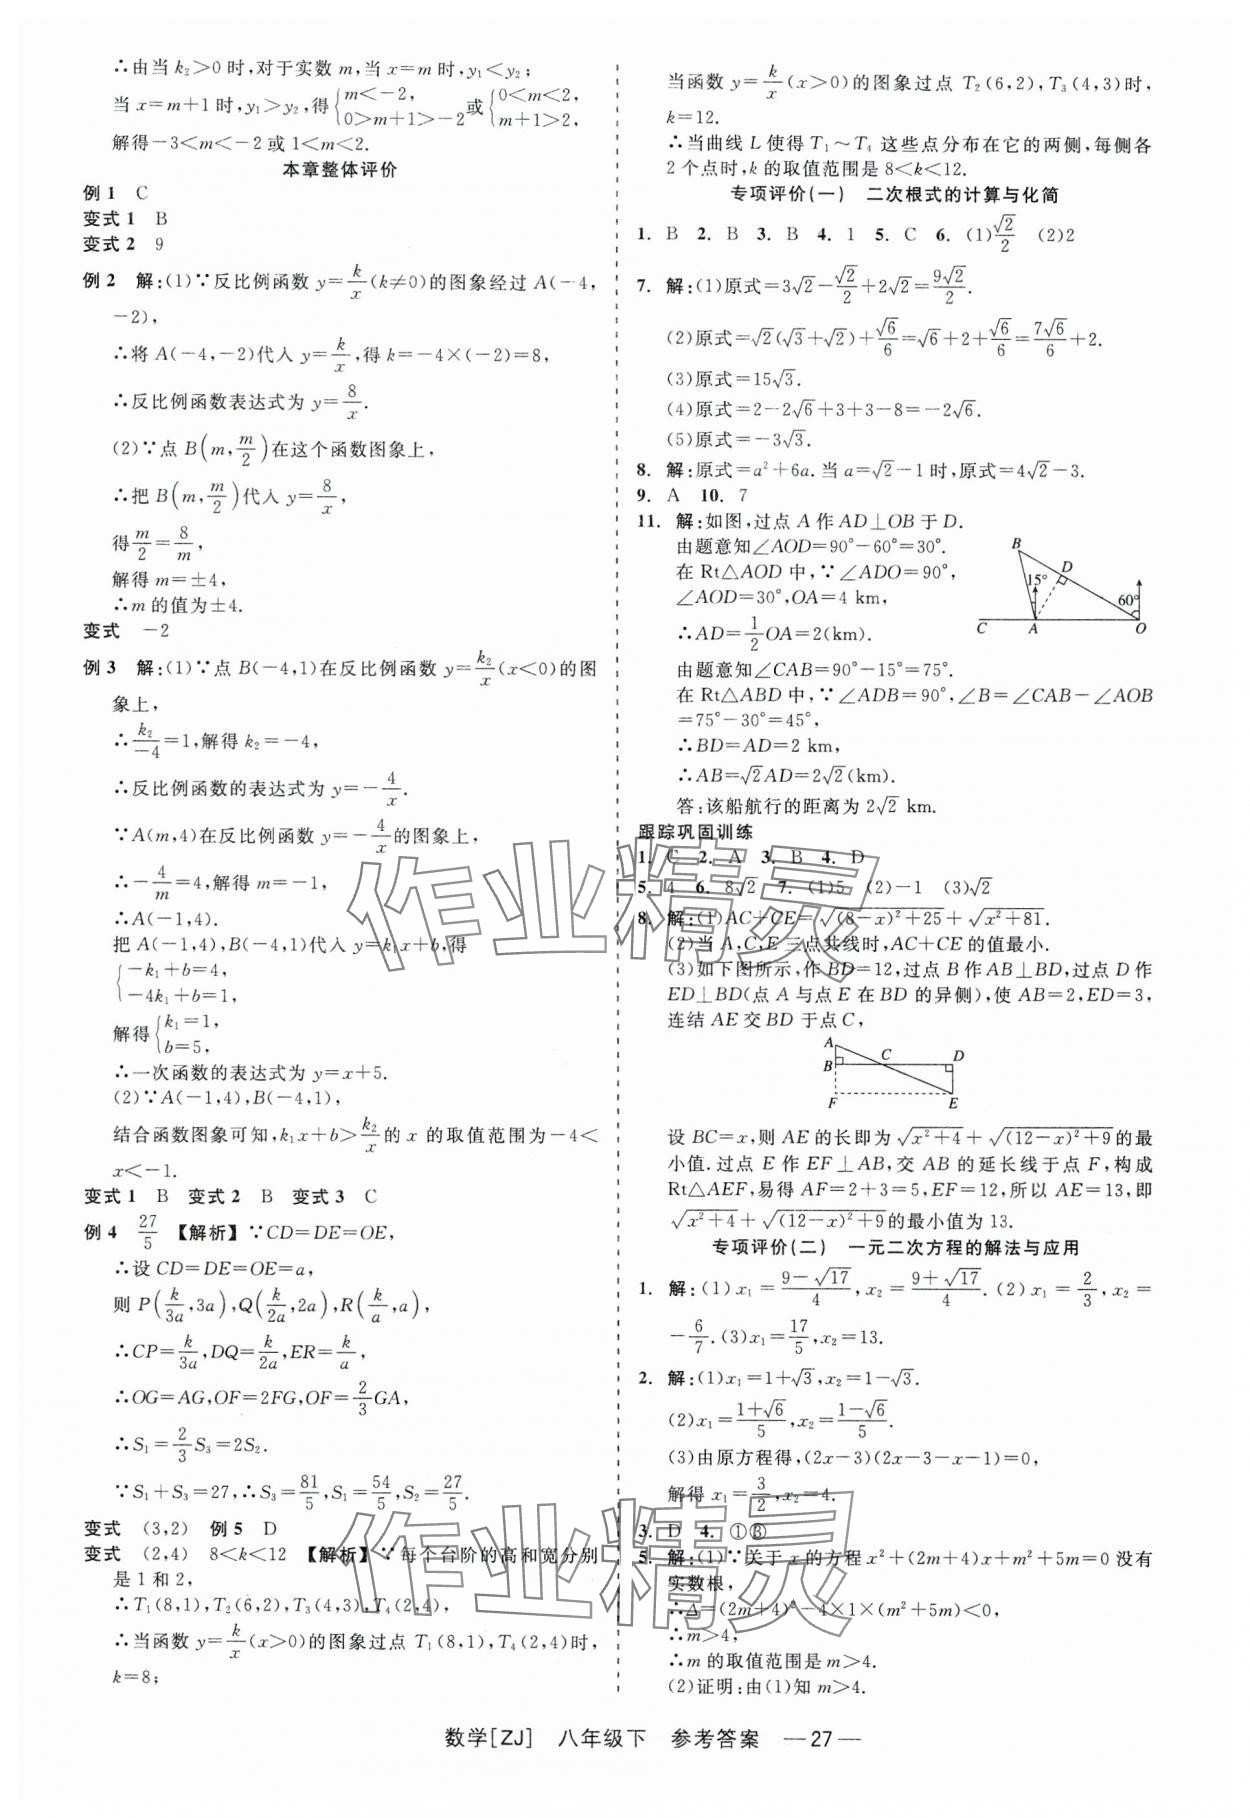 ∴由当 k₂>0 时,对于实数 m,当 x=m 时,y₁<y₂;
当 x=m+1 时,y₁>y₂,得{m<-2, 0>m+1>-2 或{0<m<2, m+1>2,
解得-3<m<-2 或 1<m<2.
本章整体评价
例 1 C
变式 1 B
变式 2 9
例 2 解:(1)∵反比例函数 y=k/x(k≠0)的图象经过 A(-4,
-2),
∴将 A(-4,-2)代入 y=k/x,得 k=-4×(-2)=8,
∴反比例函数表达式为 y=8/x.
(2)∵点 B(m,m/2)在这个函数图象上,
∴把 B(m,m/2)代入 y=8/x,
得m/2=8/m,
解得 m=±4,
∴m 的值为±4.
变式 -2
例 3 解:(1)∵点 B(-4,1)在反比例函数 y=k₂/x(x<0)的图
象上,
∴k₂/-4=1,解得 k₂=-4,
∴反比例函数的表达式为 y=-4/x.
∵A(m,4)在反比例函数 y=-4/x的图象上,
∴-4/m=4,解得 m=-1,
∴A(-1,4).
把 A(-1,4),B(-4,1)代入 y=k₁x+b,得
{-k₁+b=4,
-4k₁+b=1,
解得{k₁=1,
b=5,
∴一次函数的表达式为 y=x+5.
(2)∵A(-1,4),B(-4,1),
结合函数图象可知,k₁x+b>k₂/x的 x 的取值范围为-4<
x<-1.
变式 1 B 变式 2 B 变式 3 C
例 4 27/5 【解析】∵CD=DE=OE,
∴设 CD=DE=OE=a,
则 P(k/3a,3a),Q(k/2a,2a),R(k/a,a),
∴CP=k/3a,DQ=k/2a,ER=k/a,
∴OG=AG,OF=2FG,OF=2/3GA,
∴S₁=2/3S₃=2S₂.
∵S₁+S₃=27,∴S₃=81/5,S₁=54/5,S₂=27/5.
变式 (3,2) 例 5 D
变式 (2,4) 8<k<12 【解析】∵每个台阶的高和宽分别
是 1 和 2,
∴T₁(8,1),T₂(6,2),T₃(4,3),T₄(2,4),
∴当函数 y=k/x(x>0)的图象过点 T₁(8,1),T₄(2,4)时,
k=8;
当函数 y=k/x(x>0)的图象过点 T₂(6,2),T₃(4,3)时,
k=12.
∴当曲线 L 使得 T₁～T₄ 这些点分布在它的两侧,每侧各
2 个点时,k 的取值范围是 8<k<12.
专项评价(一) 二次根式的计算与化简
1. B 2. B 3. B 4. 1 5. C 6. (1)√2/2 (2)2
7. 解:(1)原式=3√2-√2/2+2√2=9√2/2.
(2)原式=√2(√3+√2)+√6/6=√6+2+√6/6=7√6/6+2.
(3)原式=15√3.
(4)原式=2-2√6+3+3-8=-2√6.
(5)原式=-3√3.
8. 解:原式=a²+6a.当 a=√2-1 时,原式=4√2-3.
9. A 10. 7
11. 解:如图,过点 A 作 AD⊥OB 于 D.
由题意知∠AOD=90°-60°=30°.
在 Rt△AOD 中,∵∠ADO=90°,
∠AOD=30°,OA=4 km,
∴AD=1/2OA=2(km).
B
D
15°
60°
C A O
由题意知∠CAB=90°-15°=75°.
在 Rt△ABD 中,∵∠ADB=90°,∠B=∠CAB-∠AOB
=75°-30°=45°,
∴BD=AD=2 km,
∴AB=√2AD=2√2(km).
答:该船航行的距离为 2√2 km.
跟踪巩固训练
1. C 2. A 3. B 4. D
5. 4 6. 8√2 7. (1)5 (2)-1 (3)√2
8. 解:(1)AC+CE=√((8-x)²+25)+√(x²+81).
(2)当 A,C,E 三点共线时,AC+CE 的值最小.
(3)如下图所示,作 BD=12,过点 B 作AB⊥BD,过点 D 作
ED⊥BD(点 A 与点 E 在 BD 的异侧),使 AB=2,ED=3,
连结 AE 交 BD 于点 C,
A
B C D
F E
设 BC=x,则 AE 的长即为√(x²+4)+√((12-x)²+9)的最
小值.过点 E 作 EF⊥AB,交 AB 的延长线于点 F,构成
Rt△AEF,易得 AF=2+3=5,EF=12,所以 AE=13,即
√(x²+4)+√((12-x)²+9)的最小值为 13.
专项评价(二) 一元二次方程的解法与应用
1. 解:(1)x₁=(9-√17)/4,x₂=(9+√17)/4.(2)x₁=2/3,x₂=
-6/7.(3)x₁=17/5,x₂=13.
2. 解:(1)x₁=1+√3,x₂=1-√3.
(2)x₁=(1+√6)/5,x₂=(1-√6)/5.
(3)由原方程得,(2x-3)(2x-3-x-1)=0,
解得 x₁=3/2,x₂=4.
3. D 4. ①③
5. 解:(1)∵关于 x 的方程 x²+(2m+4)x+m²+5m=0 没有
实数根,
∴Δ=(2m+4)²-4×1×(m²+5m)<0,
∴m>4,
∴m 的取值范围是 m>4.
(2)证明:由(1)知 m>4.
作业精灵
作业精灵
数学[ZJ] 八年级下 参考答案 —27—